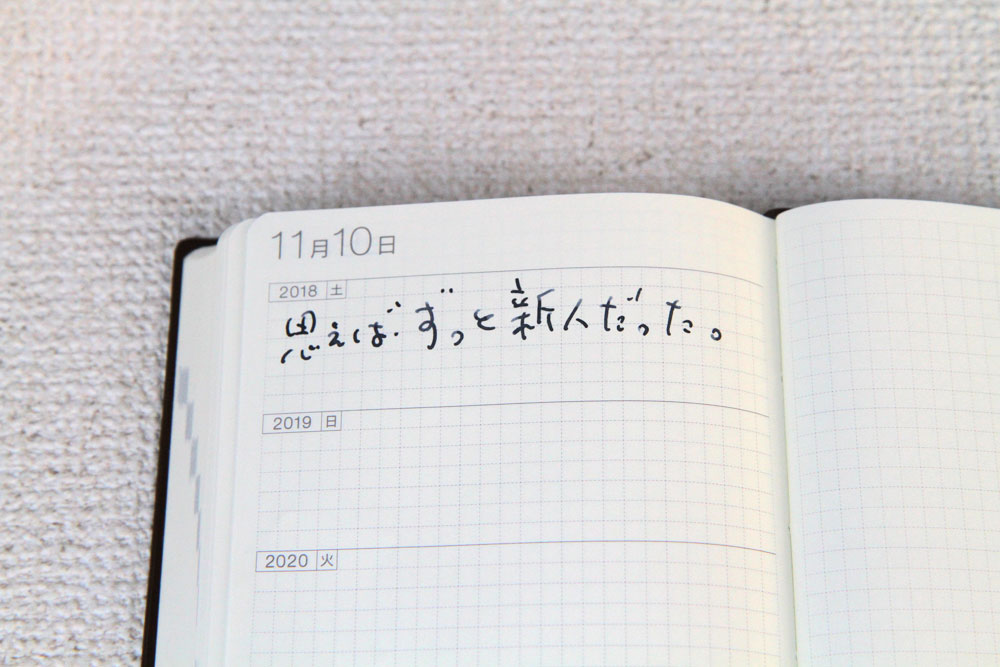 11月10日
2018 土
思えばずっと新人だった。
2019 日
2020 火